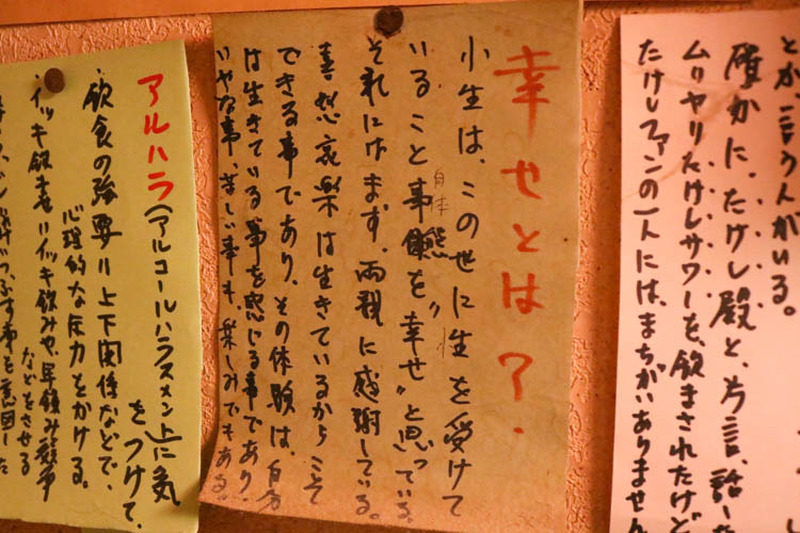 とか言う人がいる。
確かに、たけし殿と、片言、話した
ムリヤリたけしサワーを、飲まされたけど
たけしファンの一人には、まちがいありません
幸せとは?.
小生は、この世に性を受けて
いること事態を〝幸せ〟と思っている。
自体
性
それにけます。両親に感謝している。
喜怒哀楽は生きているからことて
できる事であり、その体験は、自分
は生きている事を感じる事であり、
いやな事、苦しい事も、楽しみでもある。
アルハラ(アルコールハラスメント)に気
をつけて、
・飲食の強要=上下関係などで、
心理的な圧力をかける。
・イッキ飲ませ=イッキ飲みや、早飲み競争
などをさせる
つぶす事を意図した